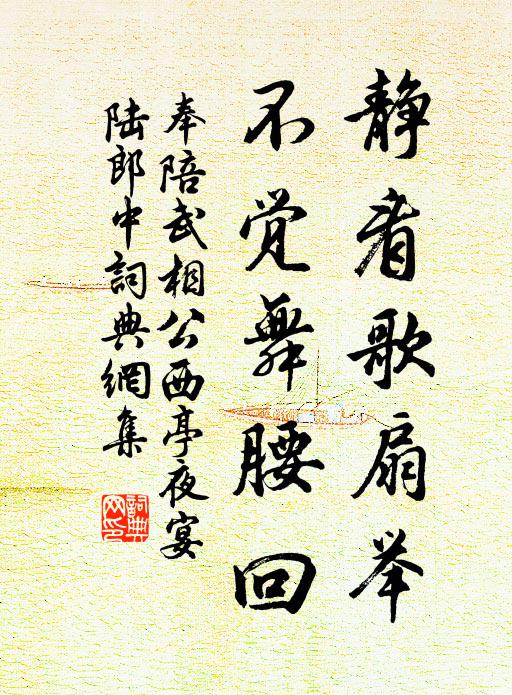 静看歌扇举
不觉舞腰回
奉陪武相公西亭夜宴
陆郎中詞典網集
詞典
网印